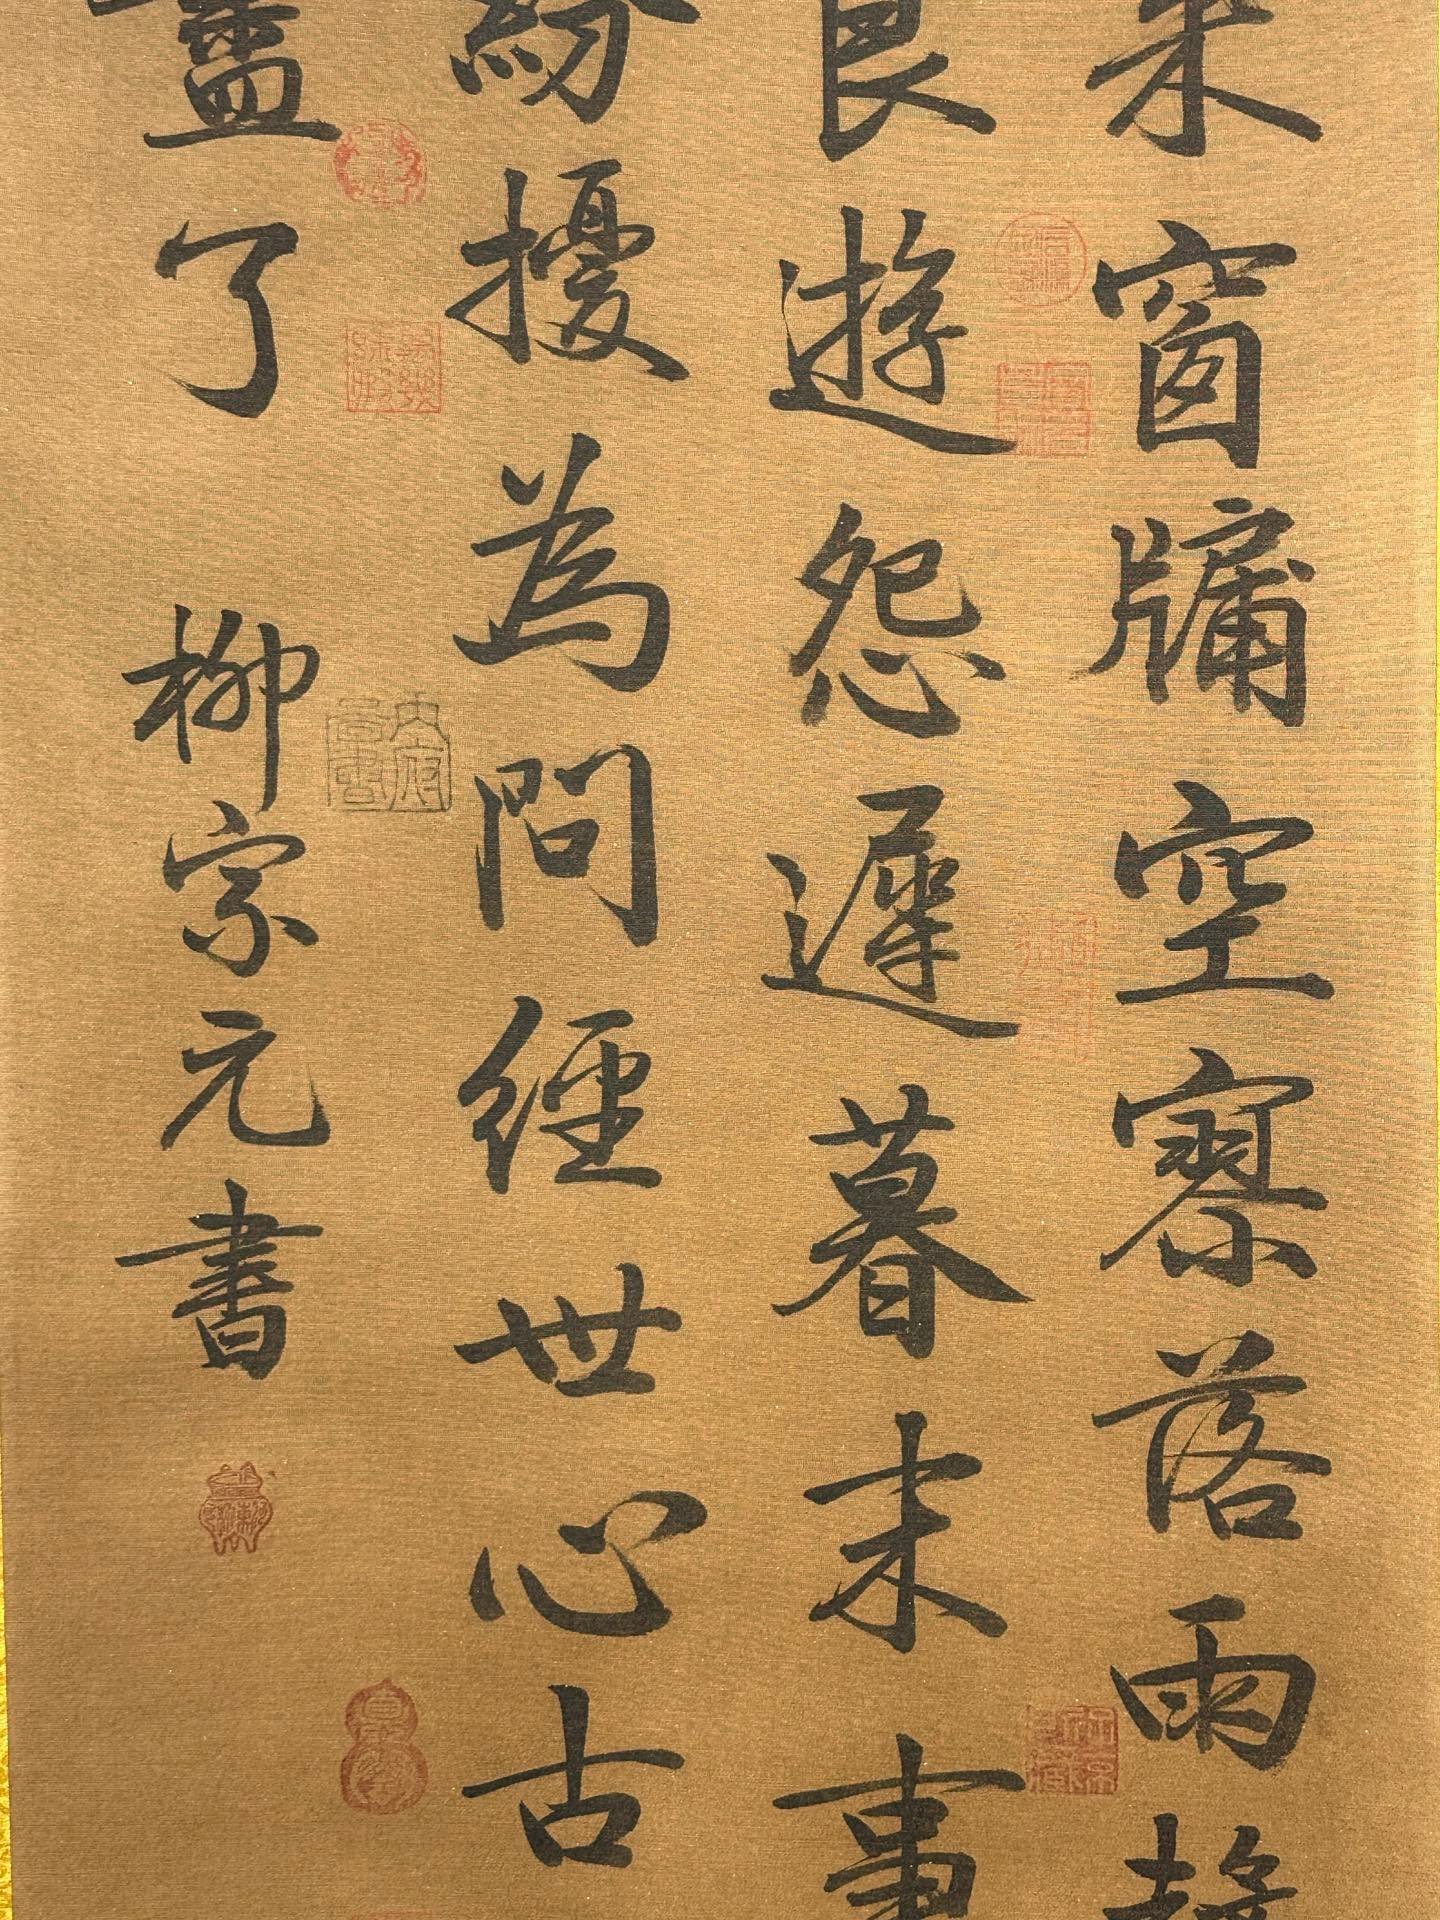 来窗牖空寮落雨
良遊怨遲暮末事
紛擾為問經世心古
盡了 柳宗元書
內府